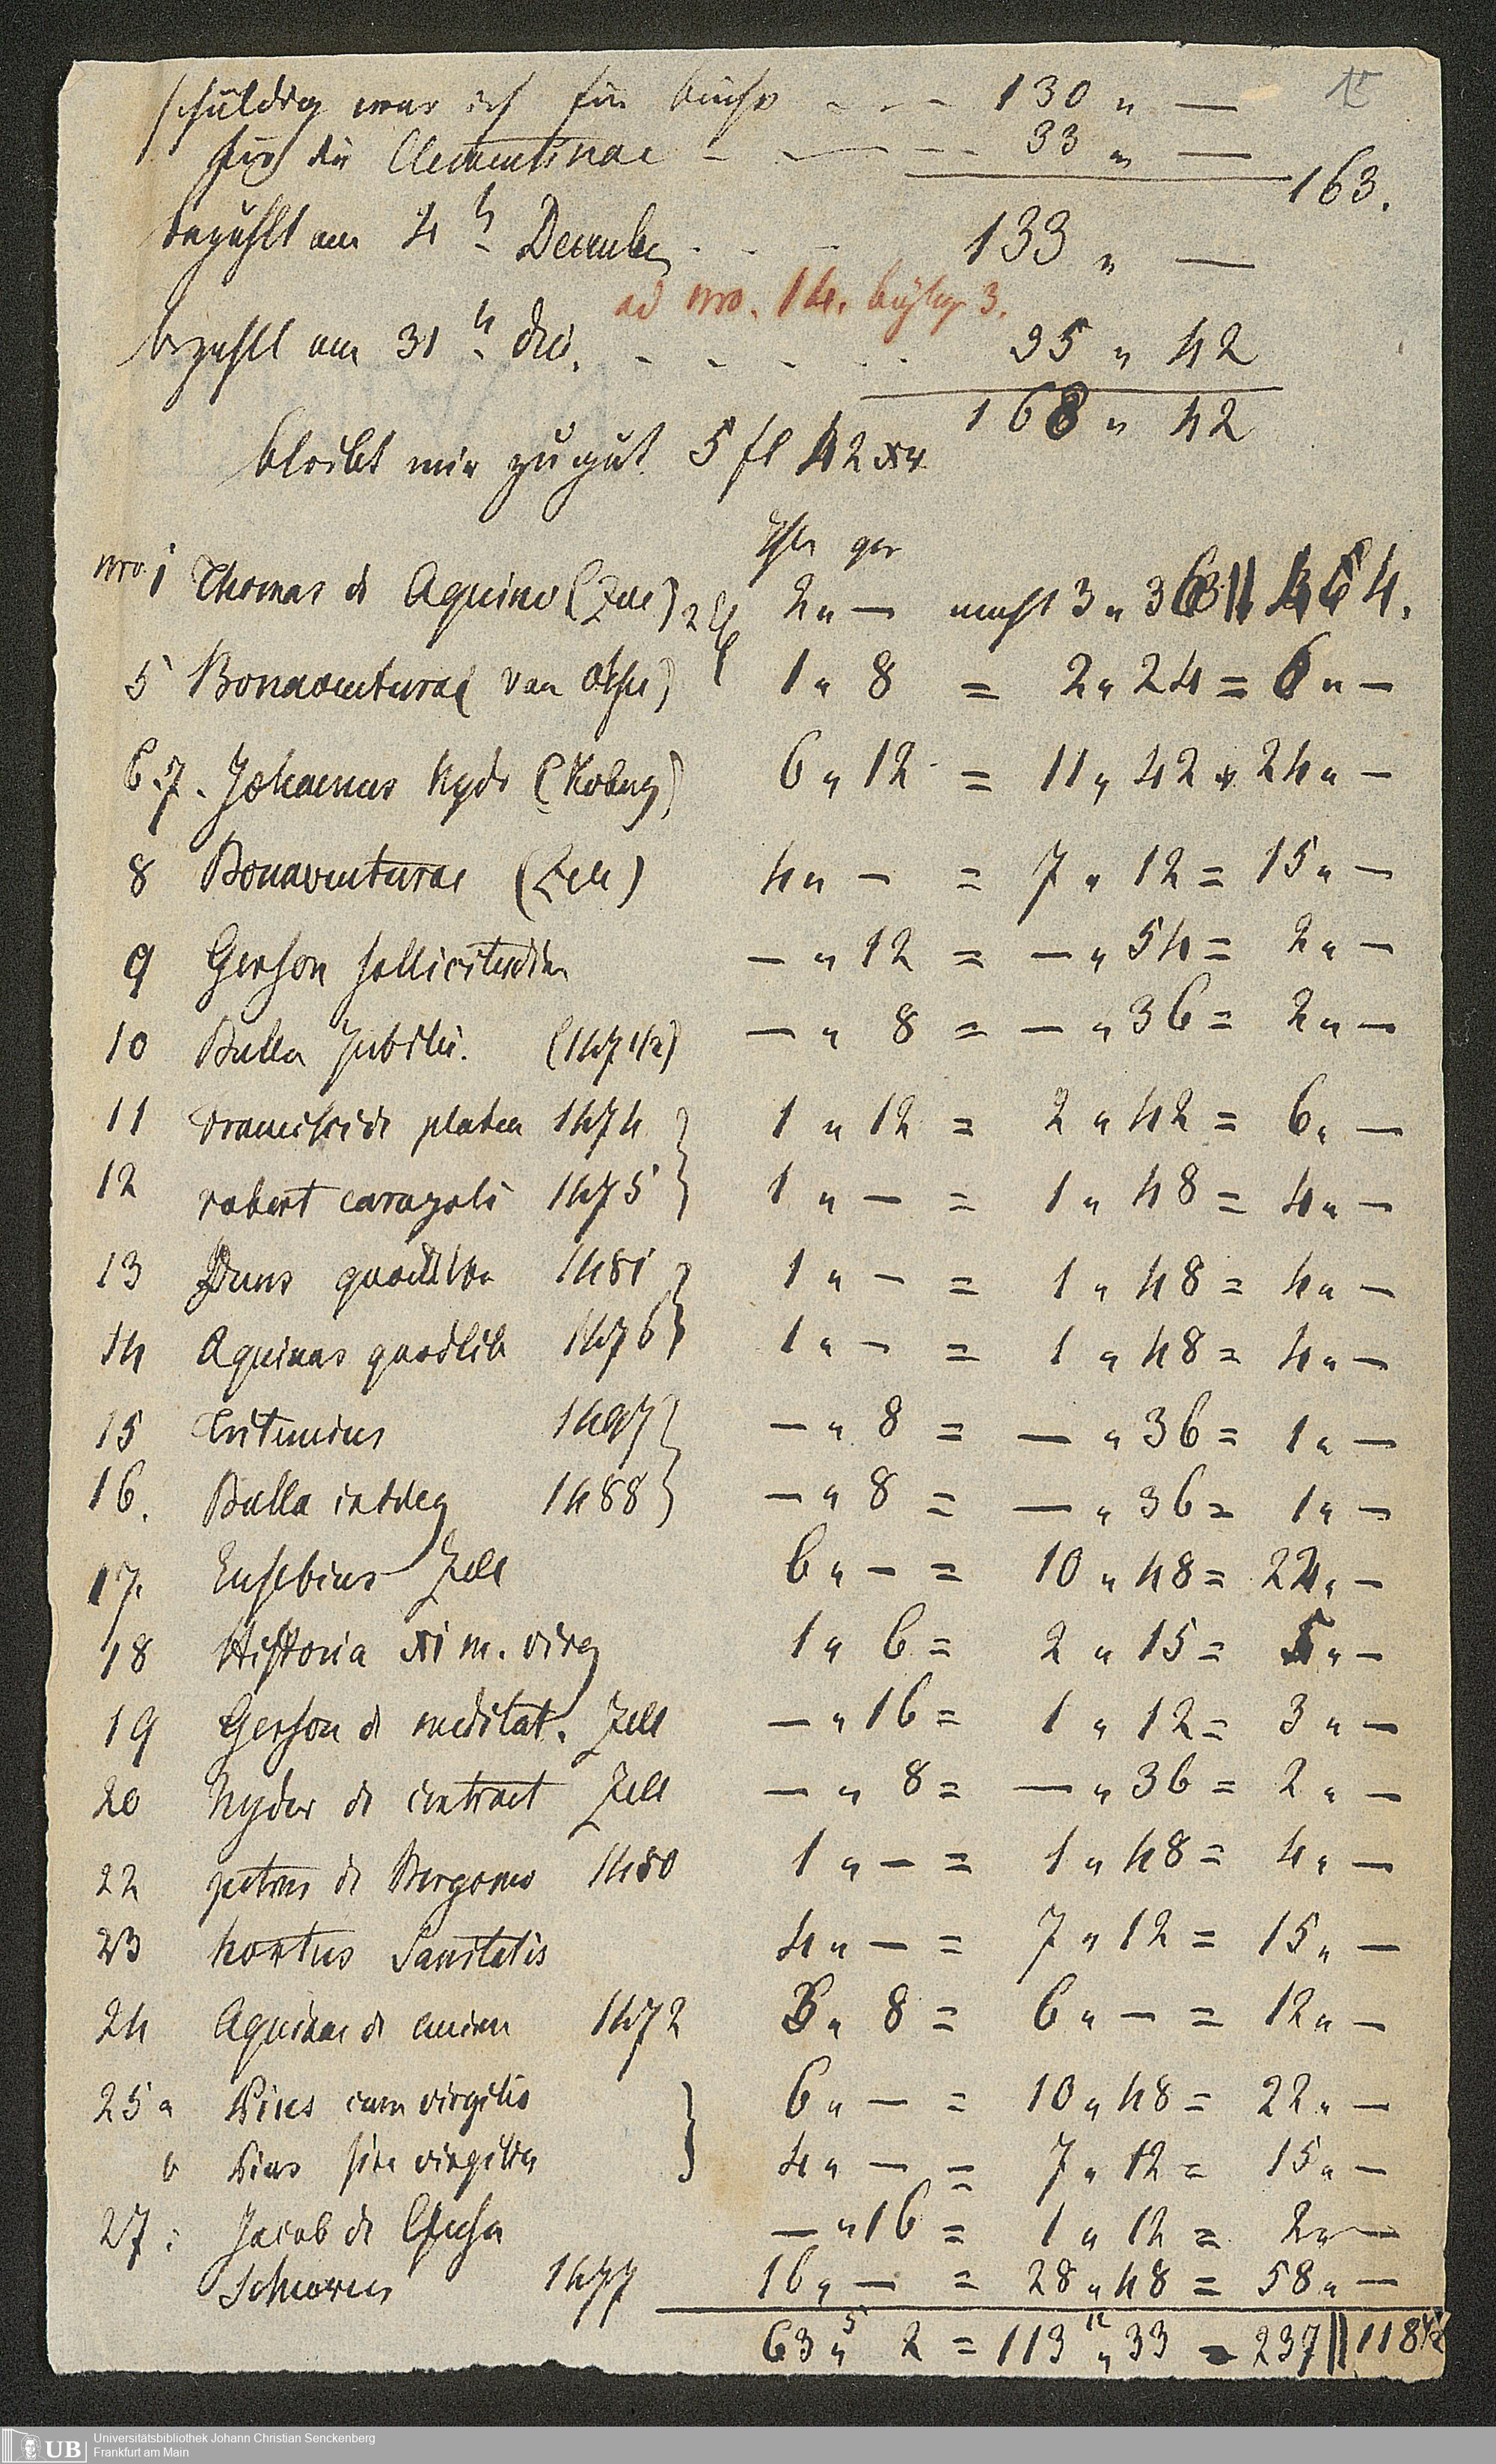 15
schuldig war ich für büche - - - 130 „ —
für die Clementinae - - - - 33 „ —
163.
bezahlt am 4 t Decembr - - - 133 „ —
ad nro. 14. büschg 3.
bezahlt am 31 t dec. - - - - - 35 „ 42
168 „ 42
bleibt mir zu gut 5 fl 42 xr
thlr gr
nro 1 Thomas de Aquino (Zell) 2 „ — macht 3 „ 36 4.
5 Bonaventurae van 1 „ 8 = 2 „ 24 = 6 „ —
6.7. Johannes Nyde (Kobug) 6 „ 12 = 11 „ 42 = 24 „ —
8 Bonaventurae (Zell) 4 „ — = 7 „ 12 = 15 „ —
9 Gerson sollicitudin — „ 12 = — „ 54 = 2 „ —
10 Bulla Jubilei. (147 1/2) — „ 8 = — „ 36 = 2 „ —
11 Francisci de platea 1474 1 „ 12 = 2 „ 42 = 6 „ —
12 robert caragoli 1475 1 „ — = 1 „ 48 = 4 „ —
13 Duns quodlibe 1481 1 „ — = 1 „ 48 = 4 „ —
14 Aquinas quodlib 1476 1 „ — = 1 „ 48 = 4 „ —
15 Tritemius 1497 — „ 8 = — „ 36 = 1 „ —
16. Bulla 1488 — „ 8 = — „ 36 = 1 „ —
17. Eusebius Zell 6 „ — = 10 „ 48 = 22 „ —
18 Historia xi m. virg 1 „ 6 = 2 „ 15 = 5 „ —
19 Gerson de meditat. Zell — „ 16 = 1 „ 12 = 3 „ —
20 Nyder de contract Zell — „ 8 = — „ 36 = 2 „ —
22 petrus de Bergomo 1480 1 „ — = 1 „ 48 = 4 „ —
23 hortus Sanitatis 4 „ — = 7 „ 12 = 15 „ —
24 Aquinas de 1472 3 „ 8 = 6 „ — = 12 „ —
25 a Pius cum virgilio 6 „ — = 10 „ 48 = 22 „ —
b Pius sine virgilio 4 „ — = 7 „ 12 = 15 „ —
27: Jacob de Clusa — „ 16 = 1 „ 12 = 2 „ —
Schwarus 1477 16 „ — = 28 „ 48 = 58 „ —
63 „ 2 = 113 „ 33 = 237 || 118 1/2
UB Universitätsbibliothek Johann Christian Senckenberg
Frankfurt am Main